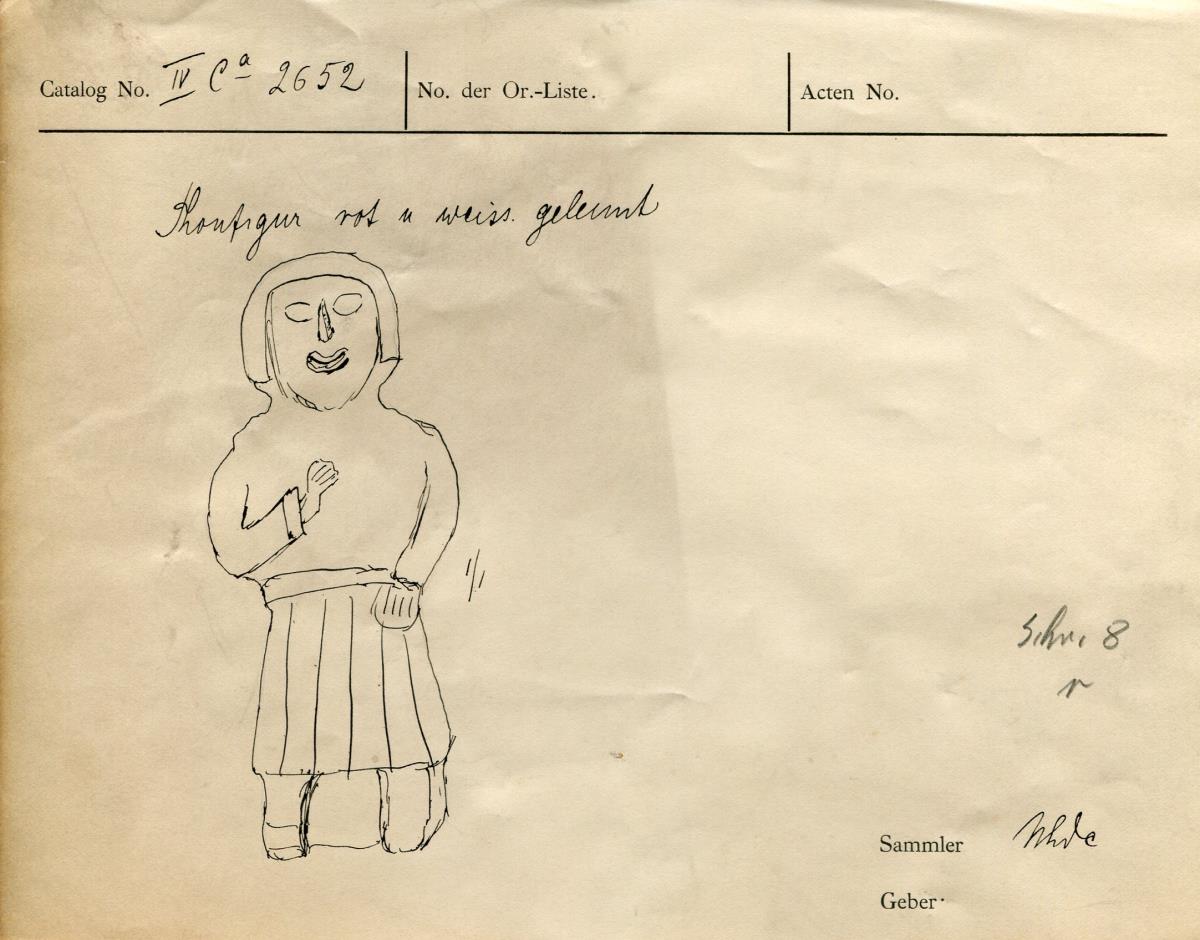 Catalog No. IV Ca 2652
No. der Or.-Liste.
Acten No.
Thonfigur rot u weiss. geleimt
1/1
Schr. 8
r
Sammler Uhde
Geber.